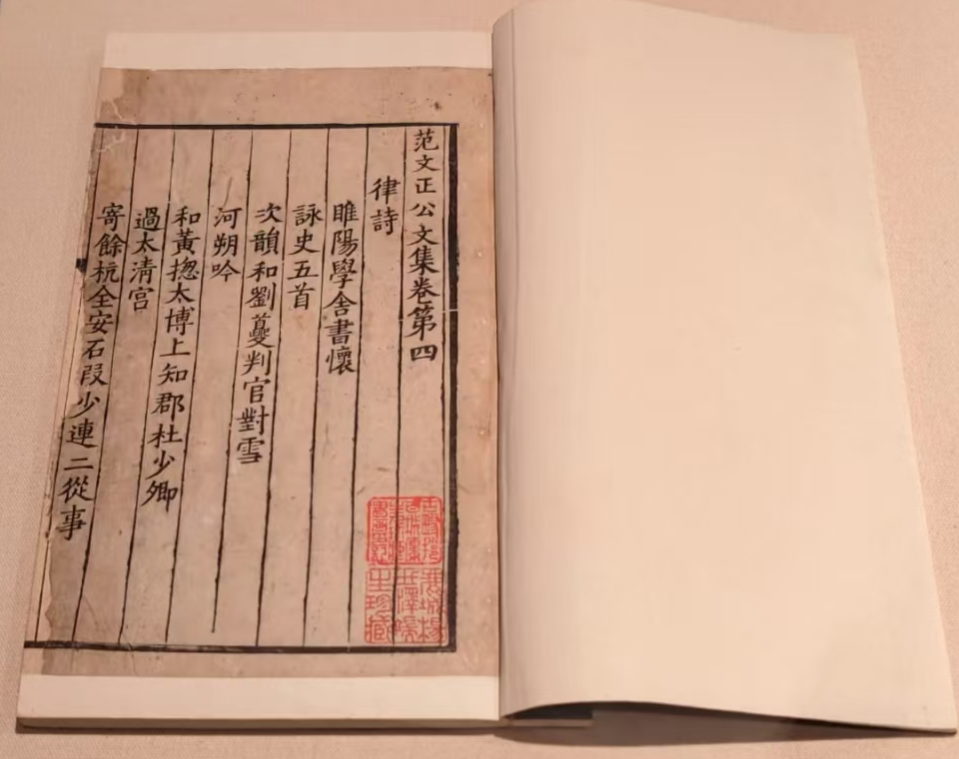 范文正公文集卷第四
律詩
睢陽學舍書懷
詠史五首
次韻和劉蘷判官對雪
河朔吟
和黃揔太博上知郡杜少卿
過太清宮
寄餘杭全安石叚少連二從事